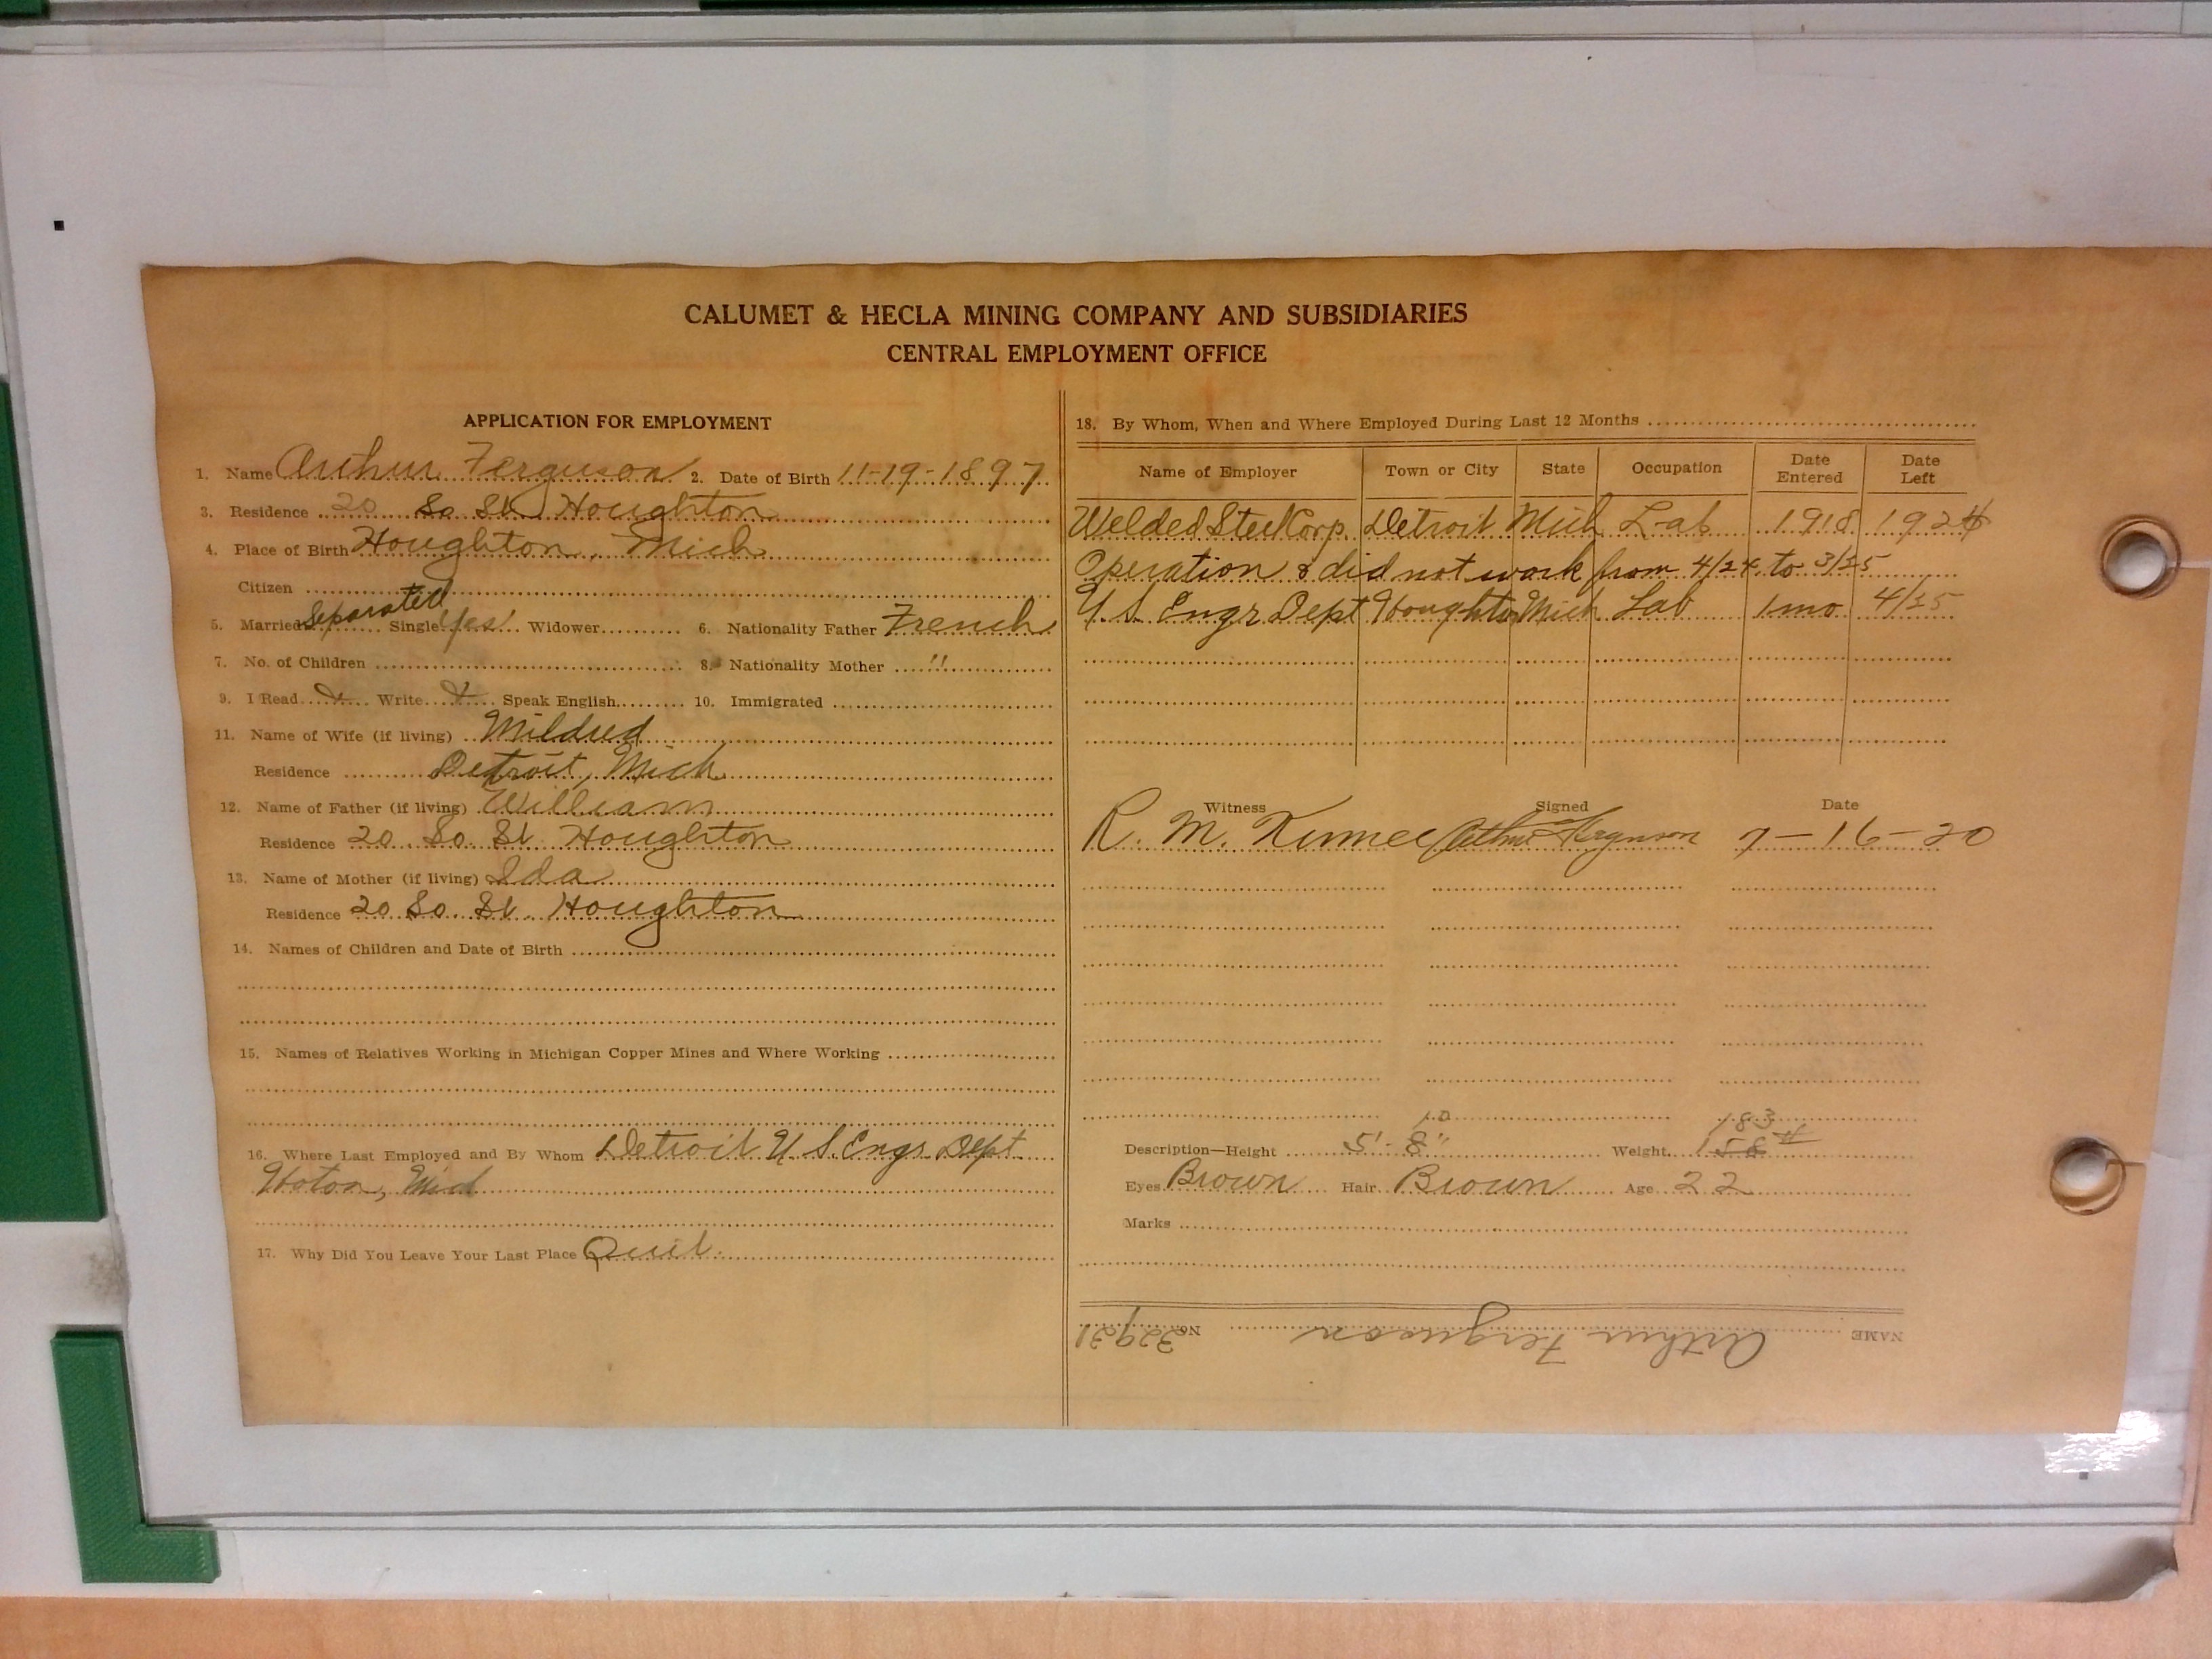 CALUMET & HECLA MINING COMPANY AND SUBSIDIARIES
CENTRAL EMPLOYMENT OFFICE
APPLICATION FOR EMPLOYMENT
1. Name Arthur Ferguson 2. Date of Birth 11-19-1897
3. Residence 20 So St Houghton
4. Place of Birth Houghton, Mich
Citizen
5. Married Separated Single Yes Widower 6. Nationality Father French
7. No. of Children 8. Nationality Mother "
9. I Read Write Speak English 10. Immigrated
11. Name of Wife (if living) Mildred
Residence Detroit, Mich
12. Name of Father (if living) William
Residence 20 So. St. Houghton
13. Name of Mother (if living) Ida
Residence 20 So. St. Houghton
14. Names of Children and Date of Birth
15. Names of Relatives Working in Michigan Copper Mines and Where Working
16. Where Last Employed and By Whom Detroit U S Engr Dept
Hoton, Mich
17. Why Did You Leave Your Last Place Quit.
18. By Whom, When and Where Employed During Last 12 Months
Name of Employer Town or City State Occupation Date Entered Date Left
Welded Steel Corp. Detroit Mich Lab 1918 1924
Operation & did not work from 4/24 to 3/25
U. S. Engr Dept Houghton Mich Lab 1 mo 4/25
Witness Signed Date
R. M. Arthur Ferguson 7-16-20
10 183
Description—Height 5'-8" Weight 158#
Eyes Brown Hair Brown Age 22
Marks
NAME Arthur Ferguson No. 32931